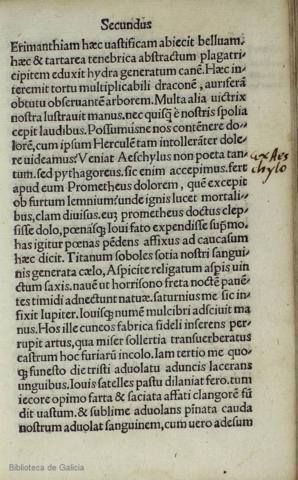 Secundus
Erimanthiam hæc uastificam abiecit belluam.
hæc & tartarea tenebrica abstractum plagatri-
cipitem eduxit hydra generatum canē. Hæc in-
teremit tortu multiplicabili draconē, auriferā
obtutu obseruantē arborem. Multa alia uictrix
nostra lustrauit manus, nec quisq̃ è nostris spolia
cepit laudibus. Possumusne nos contēnere do-
lorē, cum ipsum Herculē tam intollerāter dole-
re uideamus? Veniat Aeschylus non poeta tan-
tum, sed pythagoreus. sic enim accepimus. fert
apud eum Prometheus dolorem, quē excepit
ob furtum lemnium? unde ignis lucet mortali-
bus, clam diuisus. euʒ prometheus doctus clep-
sisse dolo, pœnasq̃ Ioui fato expendisse supͫo.
has igitur pœnas pēdens affixus ad caucasum
hæc dicit. Titanum soboles sotia nostri sangui-
nis generata cælo, Aspicite religatum aspis uin-
ctum saxis. nauē ut horrisono freta noctē pauē-
tes timidi adnectunt natuæ. saturnius me sic in-
fixit Iupiter. Iouisq̃ numē mulcibri adsciuit ma-
nus. Hos ille cuneos fabrica fideli inserens per-
rupit artus, qua miser sollertia transuerberatus
castrum hoc furiarū incolo. Iam tertio me quo-
q̃ funesto die tristi aduolatu aduncis lacerans
unguibus. Iouis satelles pastu dilaniat fero. tum
iecore opimo farta & saciata affati clangorē fū
dit uastum. & sublime aduolans pīnata cauda
nostrum aduolat sanguinem, cum uero adesum
ex Aes
chylo
Biblioteca de Galicia